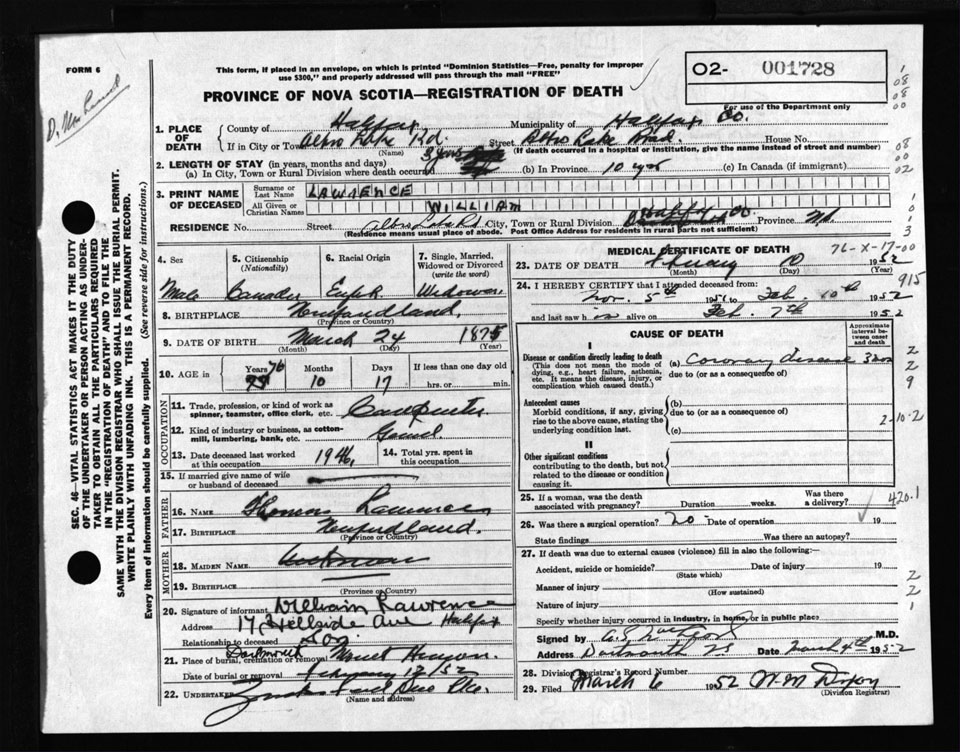 FORM 6
D. Mac
This form, if placed in an envelope, on which is printed "Dominion Statistics—Free, penalty for improper
use $300," and properly addressed will pass through the mail "FREE"
O2- 001728
For use of the Department only
PROVINCE OF NOVA SCOTIA—REGISTRATION OF DEATH
1. PLACE OF DEATH
County of Halifax Municipality of Halifax Co.
If in City or Town Albro Lake Rd. Street Albro Lake Road House No.
(Name) (If death occurred in a hospital or institution, give the name instead of street and number)
2. LENGTH OF STAY (in years, months and days)
(a) In City, Town or Rural Division where death occurred 3 yrs (b) In Province 10 yrs (c) In Canada (if immigrant)
3. PRINT NAME OF DECEASED
Surname or Last Name LAWRENCE
All Given or Christian Names WILLIAM
RESIDENCE No. Street Albro Lake Rd City, Town or Rural Division Halifax Co. Province NS
(Residence means usual place of abode. Post Office Address for residents in rural parts not sufficient)
4. Sex
Male
5. Citizenship
(Nationality)
6. Racial Origin
7. Single, Married, Widowed or Divorced
(write the word)
Widower
8. BIRTHPLACE Newfoundland
(Province or Country)
9. DATE OF BIRTH March 24 1875
(Month) (Day) (Year)
10. AGE in Years 76 Months 10 Days 17 If less than one day old
hrs. or min.
OCCUPATION
11. Trade, profession, or kind of work as
spinner, teamster, office clerk, etc. Carpenter
12. Kind of industry or business, as cotton-
mill, lumbering, bank, etc.
13. Date deceased last worked
at this occupation 1946
14. Total yrs. spent in
this occupation
15. If married give name of wife
or husband of deceased
FATHER
16. NAME Thomas Lawrence
17. BIRTHPLACE Newfoundland
(Province or Country)
MOTHER
18. MAIDEN NAME Unknown
19. BIRTHPLACE
(Province or Country)
20. Signature of informant William Lawrence
Address 17 Hillside Ave Halifax
Relationship to deceased Son
21. Place of burial, cremation or removal Dartmouth Mount Hermon
Date of burial or removal February 12/52
22. UNDERTAKER
(Name and address)
MEDICAL CERTIFICATE OF DEATH
76-X-17-00
23. DATE OF DEATH February 10 1952
(Month) (Day) (Year)
915
24. I HEREBY CERTIFY that I attended deceased from:
Nov. 5th 1951 to Feb. 10th 1952
and last saw h is alive on Feb. 7th 1952
CAUSE OF DEATH
Approximate interval between onset and death
I
Disease or condition directly leading to death
(This does not mean the mode of dying, e.g., heart failure, asthenia, etc. It means the disease, injury, or complication which caused death.)
(a) Coronary disease
due to (or as a consequence of)
Antecedent causes
Morbid conditions, if any, giving rise to the above cause, stating the underlying condition last.
(b)
due to (or as a consequence of)
(c)
2-10-2
II
Other significant conditions
contributing to the death, but not related to the disease or condition causing it.
25. If a woman, was the death
associated with pregnancy? Duration weeks. Was there a delivery?
420.1
26. Was there surgical operation? no Date of operation 19
State findings Was there an autopsy?
27. If death was due to external causes (violence) fill in also the following:—
Accident, suicide or homicide? Date of injury 19
(State which)
Manner of injury
(How sustained)
Nature of injury
Specify whether injury occurred in industry, in home, or in public place
Signed by M.D.
Address Dartmouth NS Date March 4th 1952
28. Division Registrar's Record Number
29. Filed March 6 1952 W.M. Dixon
(Division Registrar)
SEC. 46—VITAL STATISTICS ACT MAKES IT THE DUTY
OF THE UNDERTAKER OR PERSON ACTING AS UNDER-
TAKER TO OBTAIN ALL THE PARTICULARS REQUIRED
IN THE "REGISTRATION OF DEATH" AND TO FILE THE
SAME WITH THE DIVISION REGISTRAR WHO SHALL ISSUE THE BURIAL PERMIT.
WRITE PLAINLY WITH UNFADING INK. THIS IS A PERMANENT RECORD.
Every item of information should be carefully supplied. (See reverse side for instructions.)